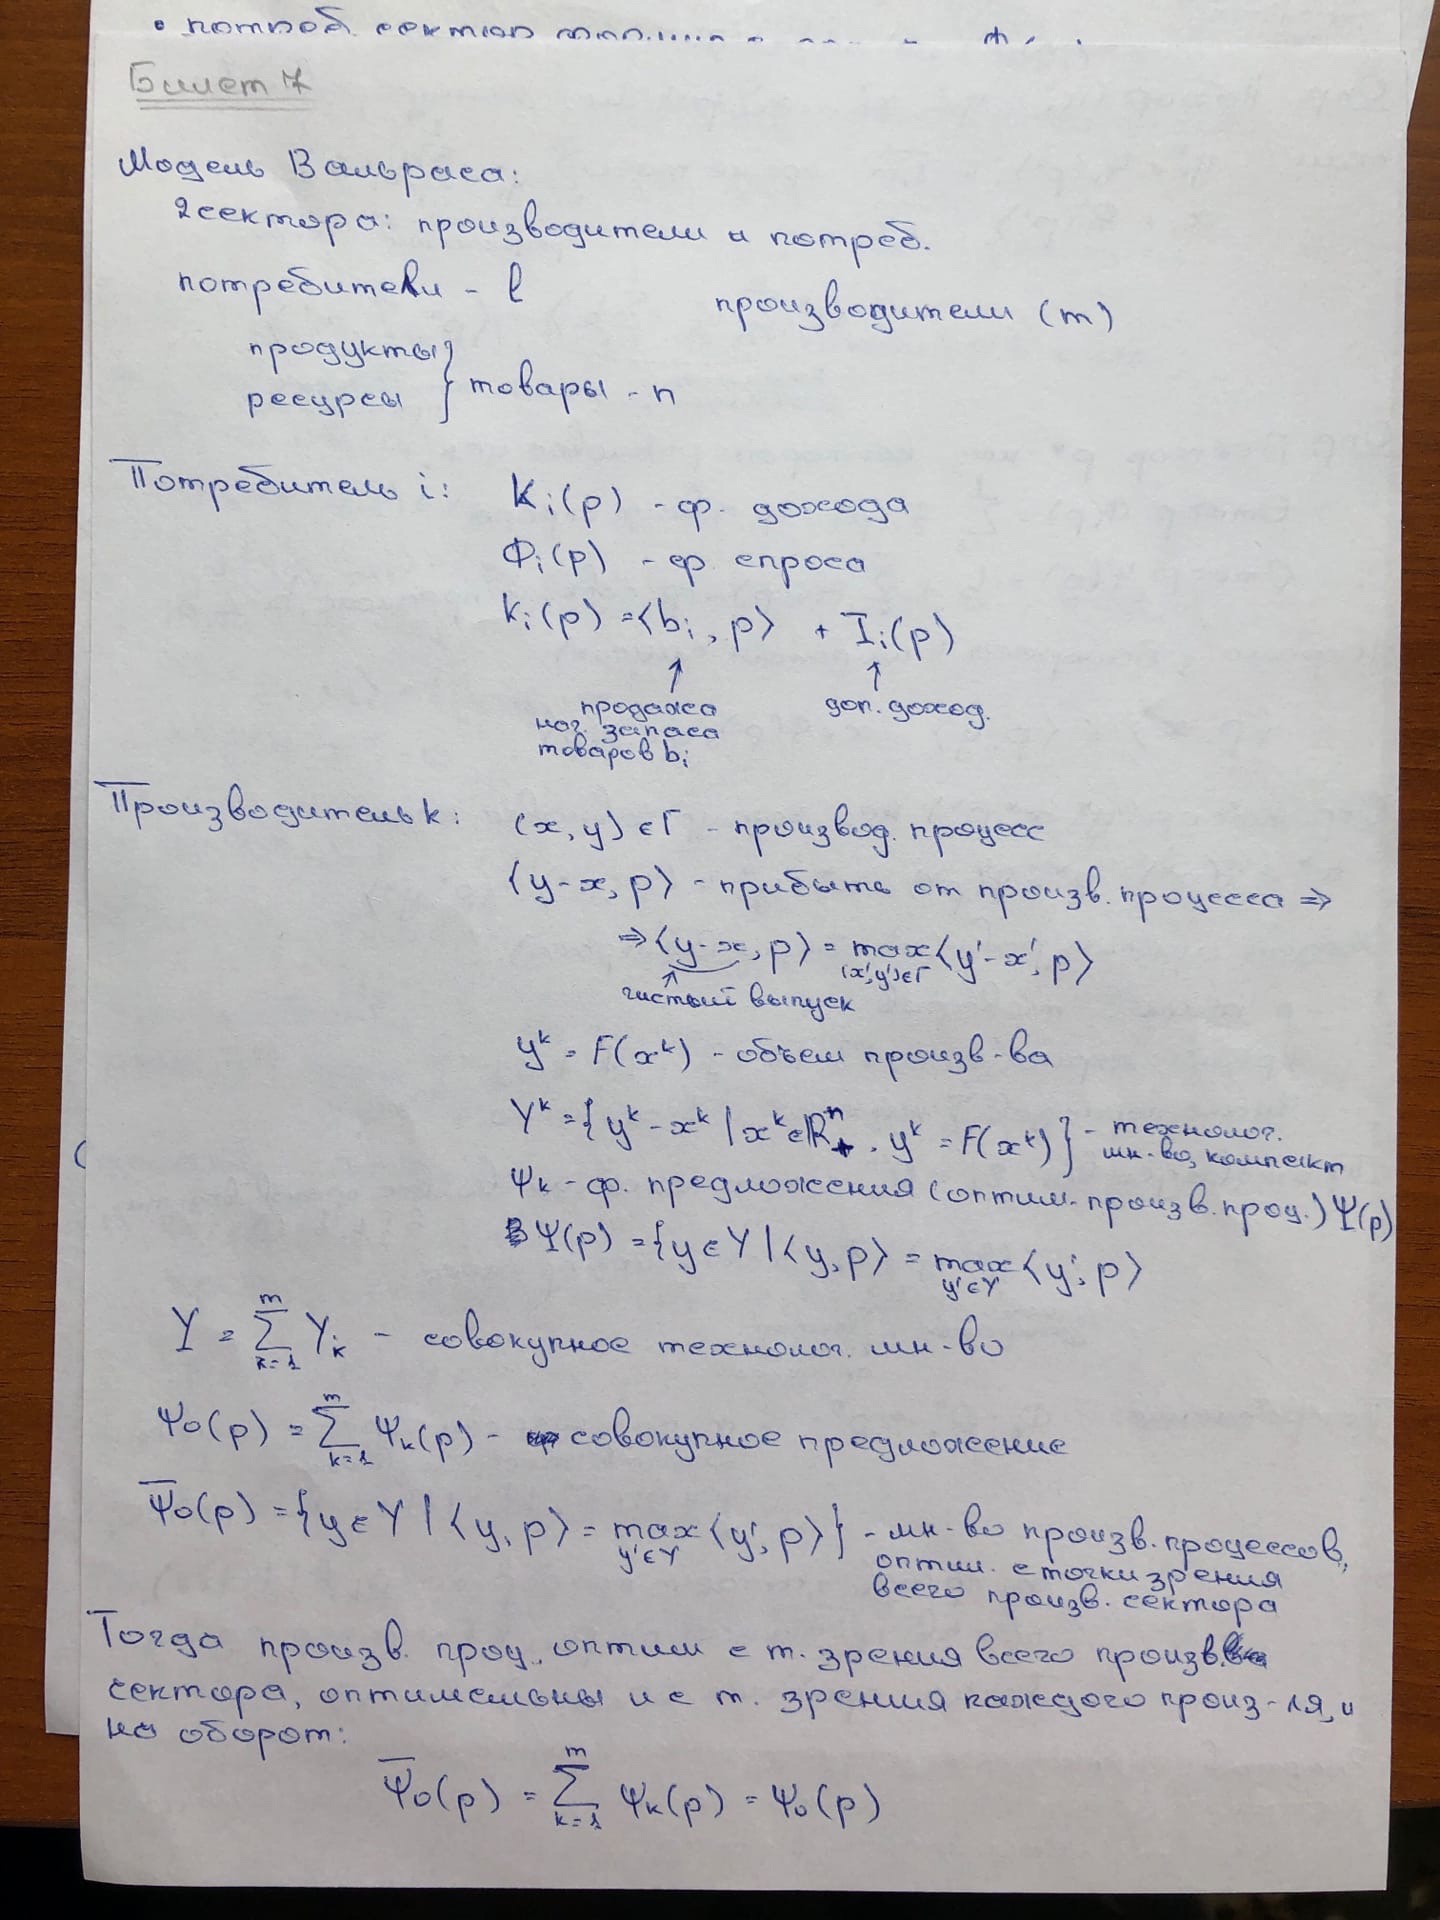 • потреб. сектор
Билет 7
Модель Вальраса:
2 сектора: производители и потреб.
потребители - l        производители (m)
продукты
ресурсы } товары - n
Потребитель i:   K_i(p) - ф. дохода
Φ_i(p) - ф. спроса
K_i(p) = ⟨b_i, p⟩ + I_i(p)
↑ ↑
продажа        доп. доход.
нач. запаса
товаров b_i
Производитель k:   (x, y) ∈ Γ - производ. процесс
⟨y-x, p⟩ - прибыть от произв. процесса ⇒
⇒ ⟨y-x, p⟩ = max_{(x',y')∈Γ} ⟨y'-x', p⟩
чистый выпуск
y^k = F(x^k) - объем произв-ва
Y^k = {y^k - x^k | x^k ∈ R^n_+, y^k = F(x^k)} - технолог.
мн-во, компакт
Ψ_k - ф. предложения (оптим. произв. проц.) Ψ(p)
Ψ(p) = {y ∈ Y | ⟨y, p⟩ = max_{y'∈Y} ⟨y', p⟩
Y = Σ_{k=1}^m Y_k - совокупное технолог. мн-во
Ψ_0(p) = Σ_{k=1}^m Ψ_k(p) - совокупное предложение
Ψ̄_0(p) = {y ∈ Y | ⟨y, p⟩ = max_{y'∈Y} ⟨y', p⟩} - мн-во произв. процессов,
оптим. с точки зрения
всего произв. сектора
Тогда произв. проц., оптим с т. зрения всего произв.
сектора, оптимальны и с т. зрения каждого произ-ля, и
на оборот:
Ψ̄_0(p) = Σ_{k=1}^m Ψ_k(p) = Ψ_0(p)